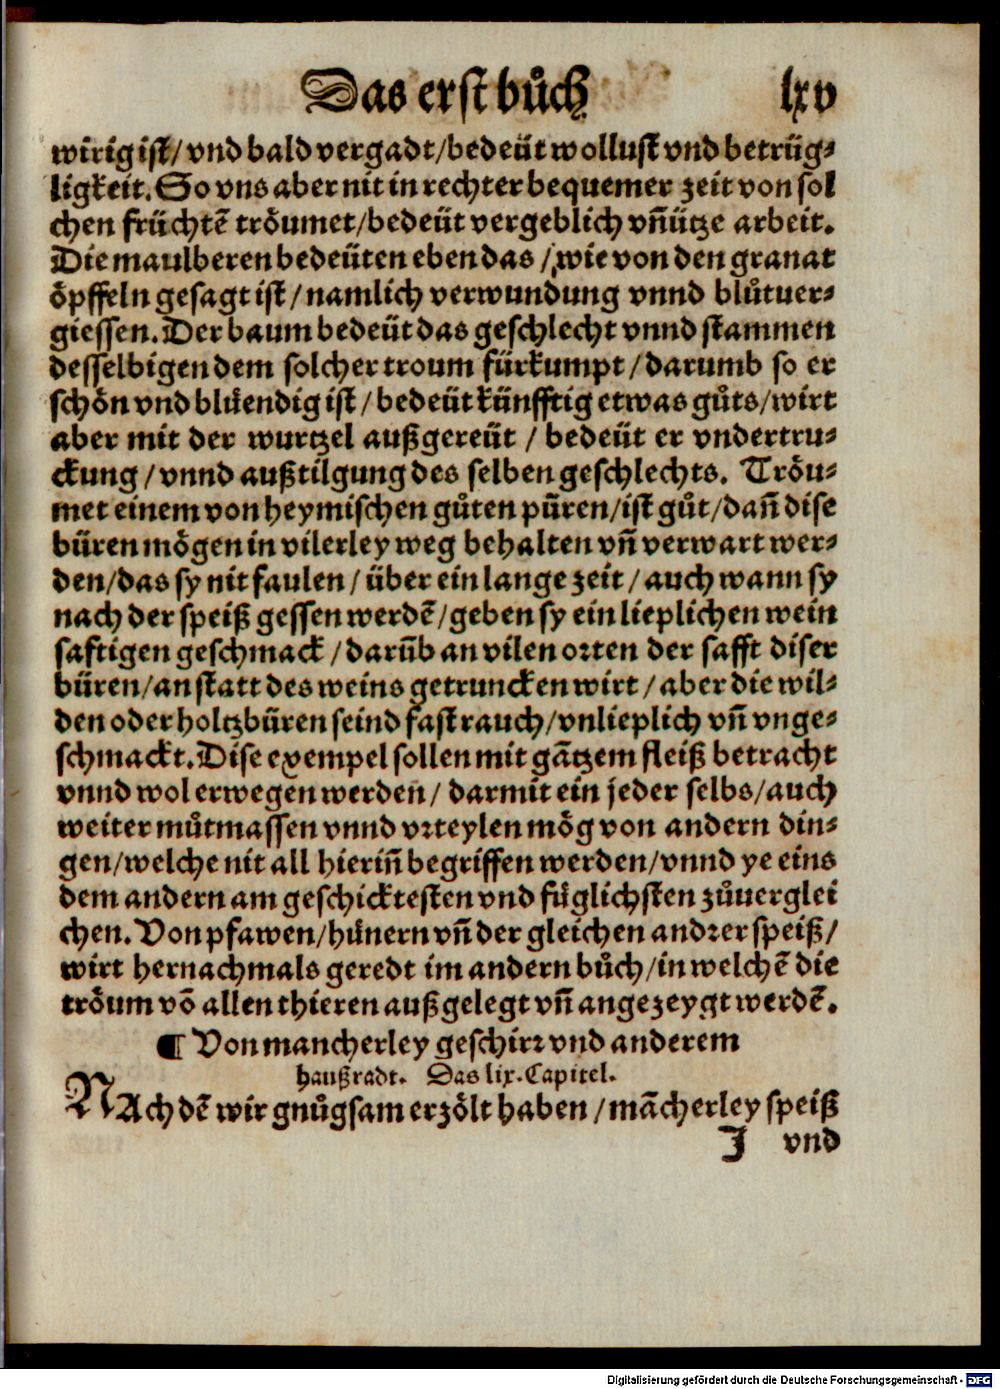 Das erst bůch lxv
wirig ist/vnd bald vergadt/bedeüt wollust vnd betrüg⸗
ligkeit. So vns aber nit in rechter bequemer zeit von sol
chen früchtē tröumet/bedeüt vergeblich vñütze arbeit.
Die maulberen bedeüten eben das/wie von den granat
öpffeln gesagt ist/namlich verwundung vnnd blůtuer⸗
giessen. Der baum bedeüt das geschlecht vnnd stammen
desselbigen dem solcher troum fürkumpt/darumb so er
schön vnd blüendig ist/bedeüt künfftig etwas gůts/wirt
aber mit der wurtzel außgereüt/bedeüt er vndertru⸗
ckung/vnnd außtilgung des selben geschlechts. Tröu⸗
met einem von heymischen gůten pũren/ist gůt/dañ dise
büren mögen in vilerley weg behalten vñ verwart wer⸗
den/das sy nit faulen/über ein lange zeit/auch wann sy
nach der speiß gessen werdē/geben sy ein lieplichen wein
safftigen geschmack/darũb an vilen orten der safft diser
büren/anstatt des weins getruncken wirt/aber die wil⸗
den oder holtzbüren seind fast rauch/vnlieplich vñ vnge⸗
schmackt. Dise exempel sollen mit gãtzem fleiß betracht
vnnd wol erwegen werden/darmit ein jeder selbs/auch
weiter můtmassen vnnd vrteylen mög von andern din⸗
gen/welche nit all hieriñ begriffen werden/vnnd ye eins
dem andern am geschicktesten vnd füglichsten zůuerglei
chen. Von pfawen/hünern vñ der gleichen andrer speiß/
wirt hernachmals geredt im andern bůch/in welchē die
tröum võ allen thieren außgelegt vñ angezeygt werdē.
¶ Von mancherley geschirr vnd anderem
haußradt. Das lix. Capitel.
NAch dē wir gnůgsam erzölt haben/mãcherley speiß
I vnd
Digitalisierung gefördert durch die Deutsche Forschungsgemeinschaft - DFG